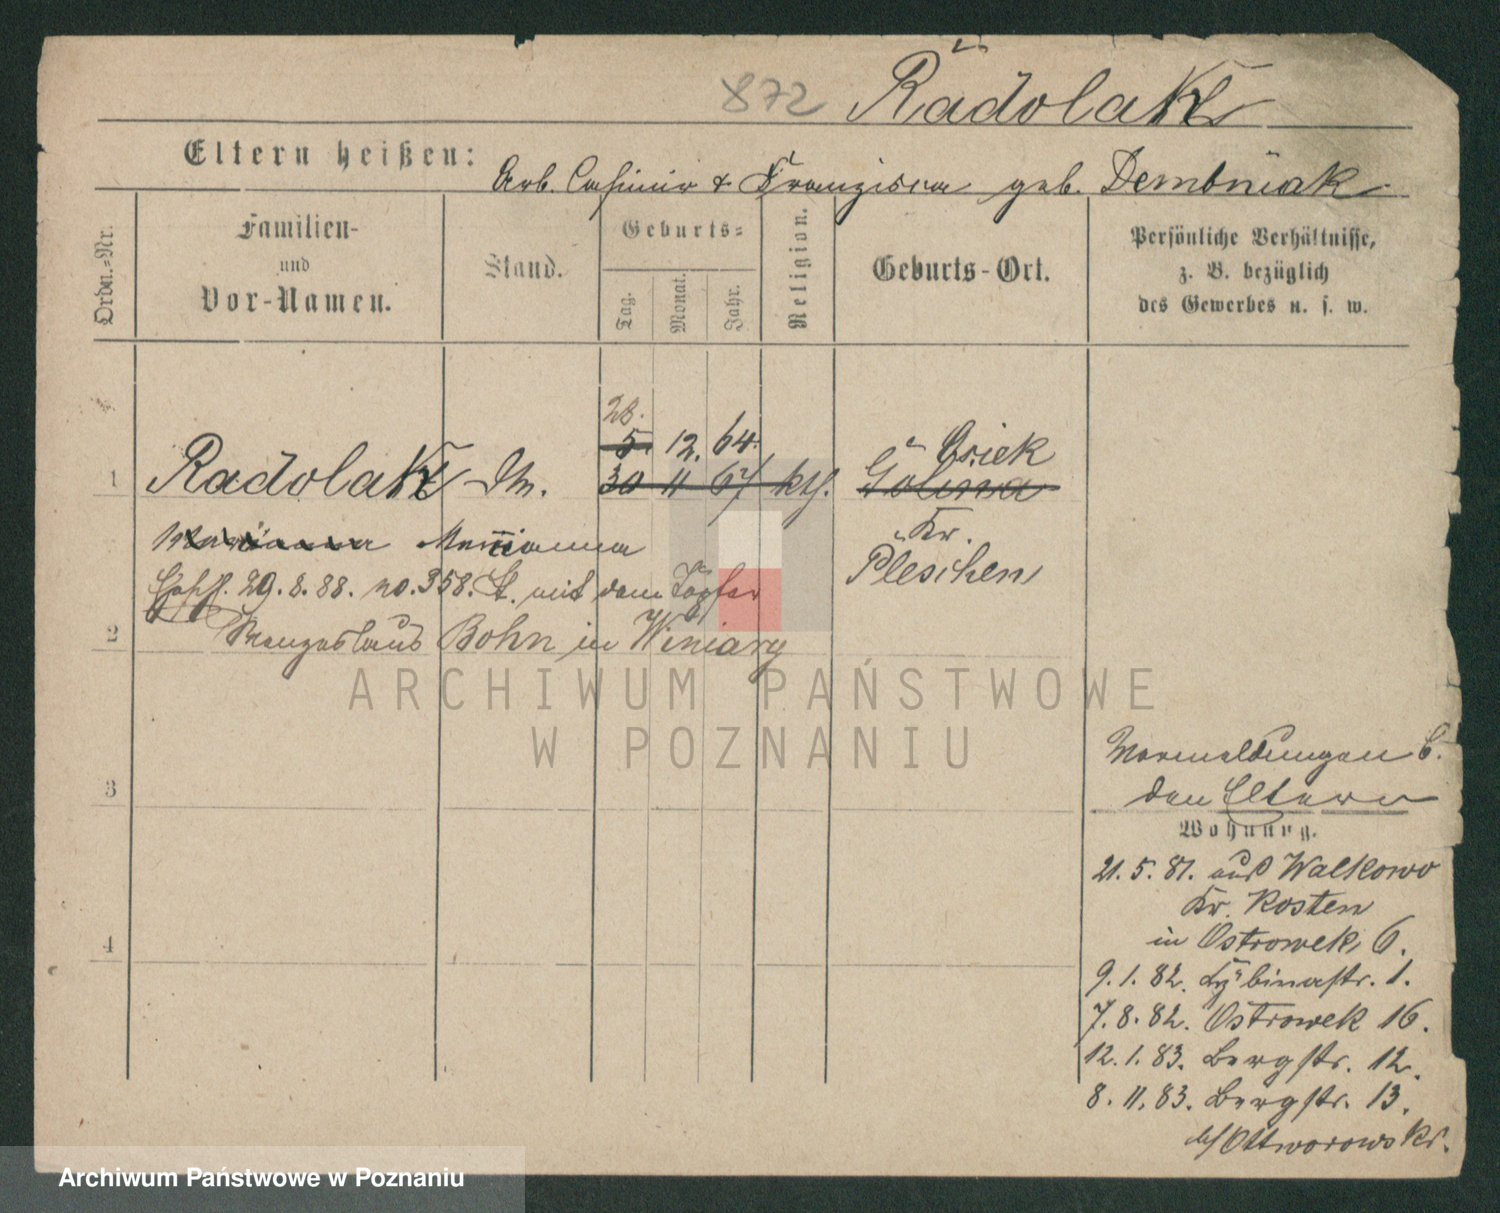 872 Radolak
Eltern heißen: Arb. Casimir & Franziska geb. Dembniak
Orden.=Nr.
Familien-
und
Vor-Namen.
Stand.
Geburts=
Tag.
Monat.
Jahr.
Religion.
Geburts-Ort.
Persönliche Verhältnisse,
z. B. bezüglich
des Gewerbes u. s. w.
28.
5 12. 64. Osiek
1 Radolak 30 11 67 kth. Golina
Marianna Marianna Kr.
Pleschen
29. 8. 88. no. 358. St. mit dem Töpfer
2 Bohn in Winiary
ARCHIWUM PAŃSTWOWE
W POZNANIU
3
Vormeldungen b.
den Eltern
Wohnung.
21. 5. 81. aus Walkowo
Kr. Kosten
in Ostrowek 6.
4
9. 1. 82. Cybinastr. 1.
7. 8. 82. Ostrowek 16.
12. 1. 83. Bergstr. 12.
8. 11. 83. Bergstr. 13.
b/Ottworowski.
Archiwum Państwowe w Poznaniu